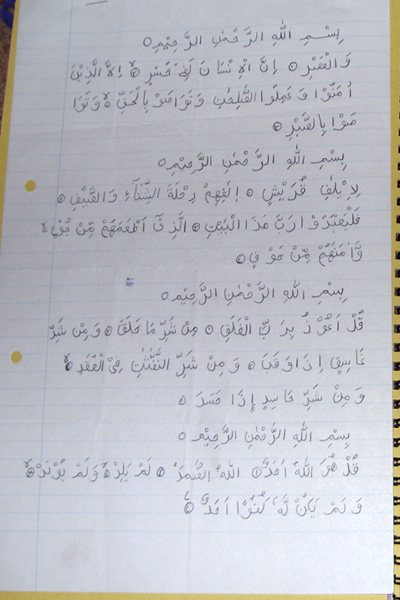 بِسْمِ اللهِ الرَّحْمٰنِ الرَّحِيْمِ ○
وَالْعَصْرِ ○ اِنَّ الْاِنْسَانَ لَفِىْ خُسْرٍ ○ اِلَّا الَّذِيْنَ
اٰمَنُوْا وَعَمِلُوا الصّٰلِحٰتِ وَتَوَاصَوْ بِالْحَقِّ ○ وَتَوَا
صَوْا بِالصَّبْرِ ○
بِسْمِ اللهِ الرَّحْمٰنِ الرَّحِيْمِ ○
لِاِيْلٰفِ قُرَيْشٍ ○ اٖلٰفِهِمْ رِحْلَةَ الشِّتَآءِ وَالصَّيْفِ ○
فَلْيَعْبُدُوْا رَبَّ هٰذَا الْبَيْتِ ○ الَّذِىْٓ اَطْعَمَهُمْ مِّنْ جُوْعٍ ○
وَّاٰمَنَهُمْ مِّنْ خَوْفٍ ○
بِسْمِ اللهِ الرَّحْمٰنِ الرَّحِيْمِ ○
قُلْ اَعُوْذُ بِرَبِّ الْفَلَقِ ○ مِنْ شَرِّ مَا خَلَقَ ○ وَمِنْ شَرِّ
غَاسِقٍ اِذَا وَقَبَ ○ وَمِنْ شَرِّ النَّفّٰثٰتِ فِى الْعُقَدِ ○
وَمِنْ شَرِّ حَاسِدٍ اِذَا حَسَدَ ○
بِسْمِ اللهِ الرَّحْمٰنِ الرَّحِيْمِ ○
قُلْ هُوَ اللهُ اَحَدٌ ○ اللهُ الصَّمَدُ ○ لَمْ يَلِدْ ○ وَلَمْ يُوْلَدْ ○
وَلَمْ يَكُنْ لَّهٗ كُفُوًا اَحَدٌ ○